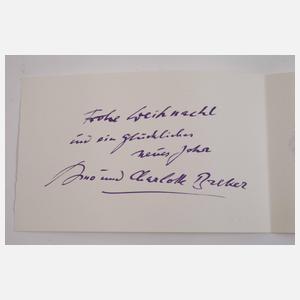 Frohe Weihnacht
und ein glückliches
neues Jahr
Arno und Charlotte Breker